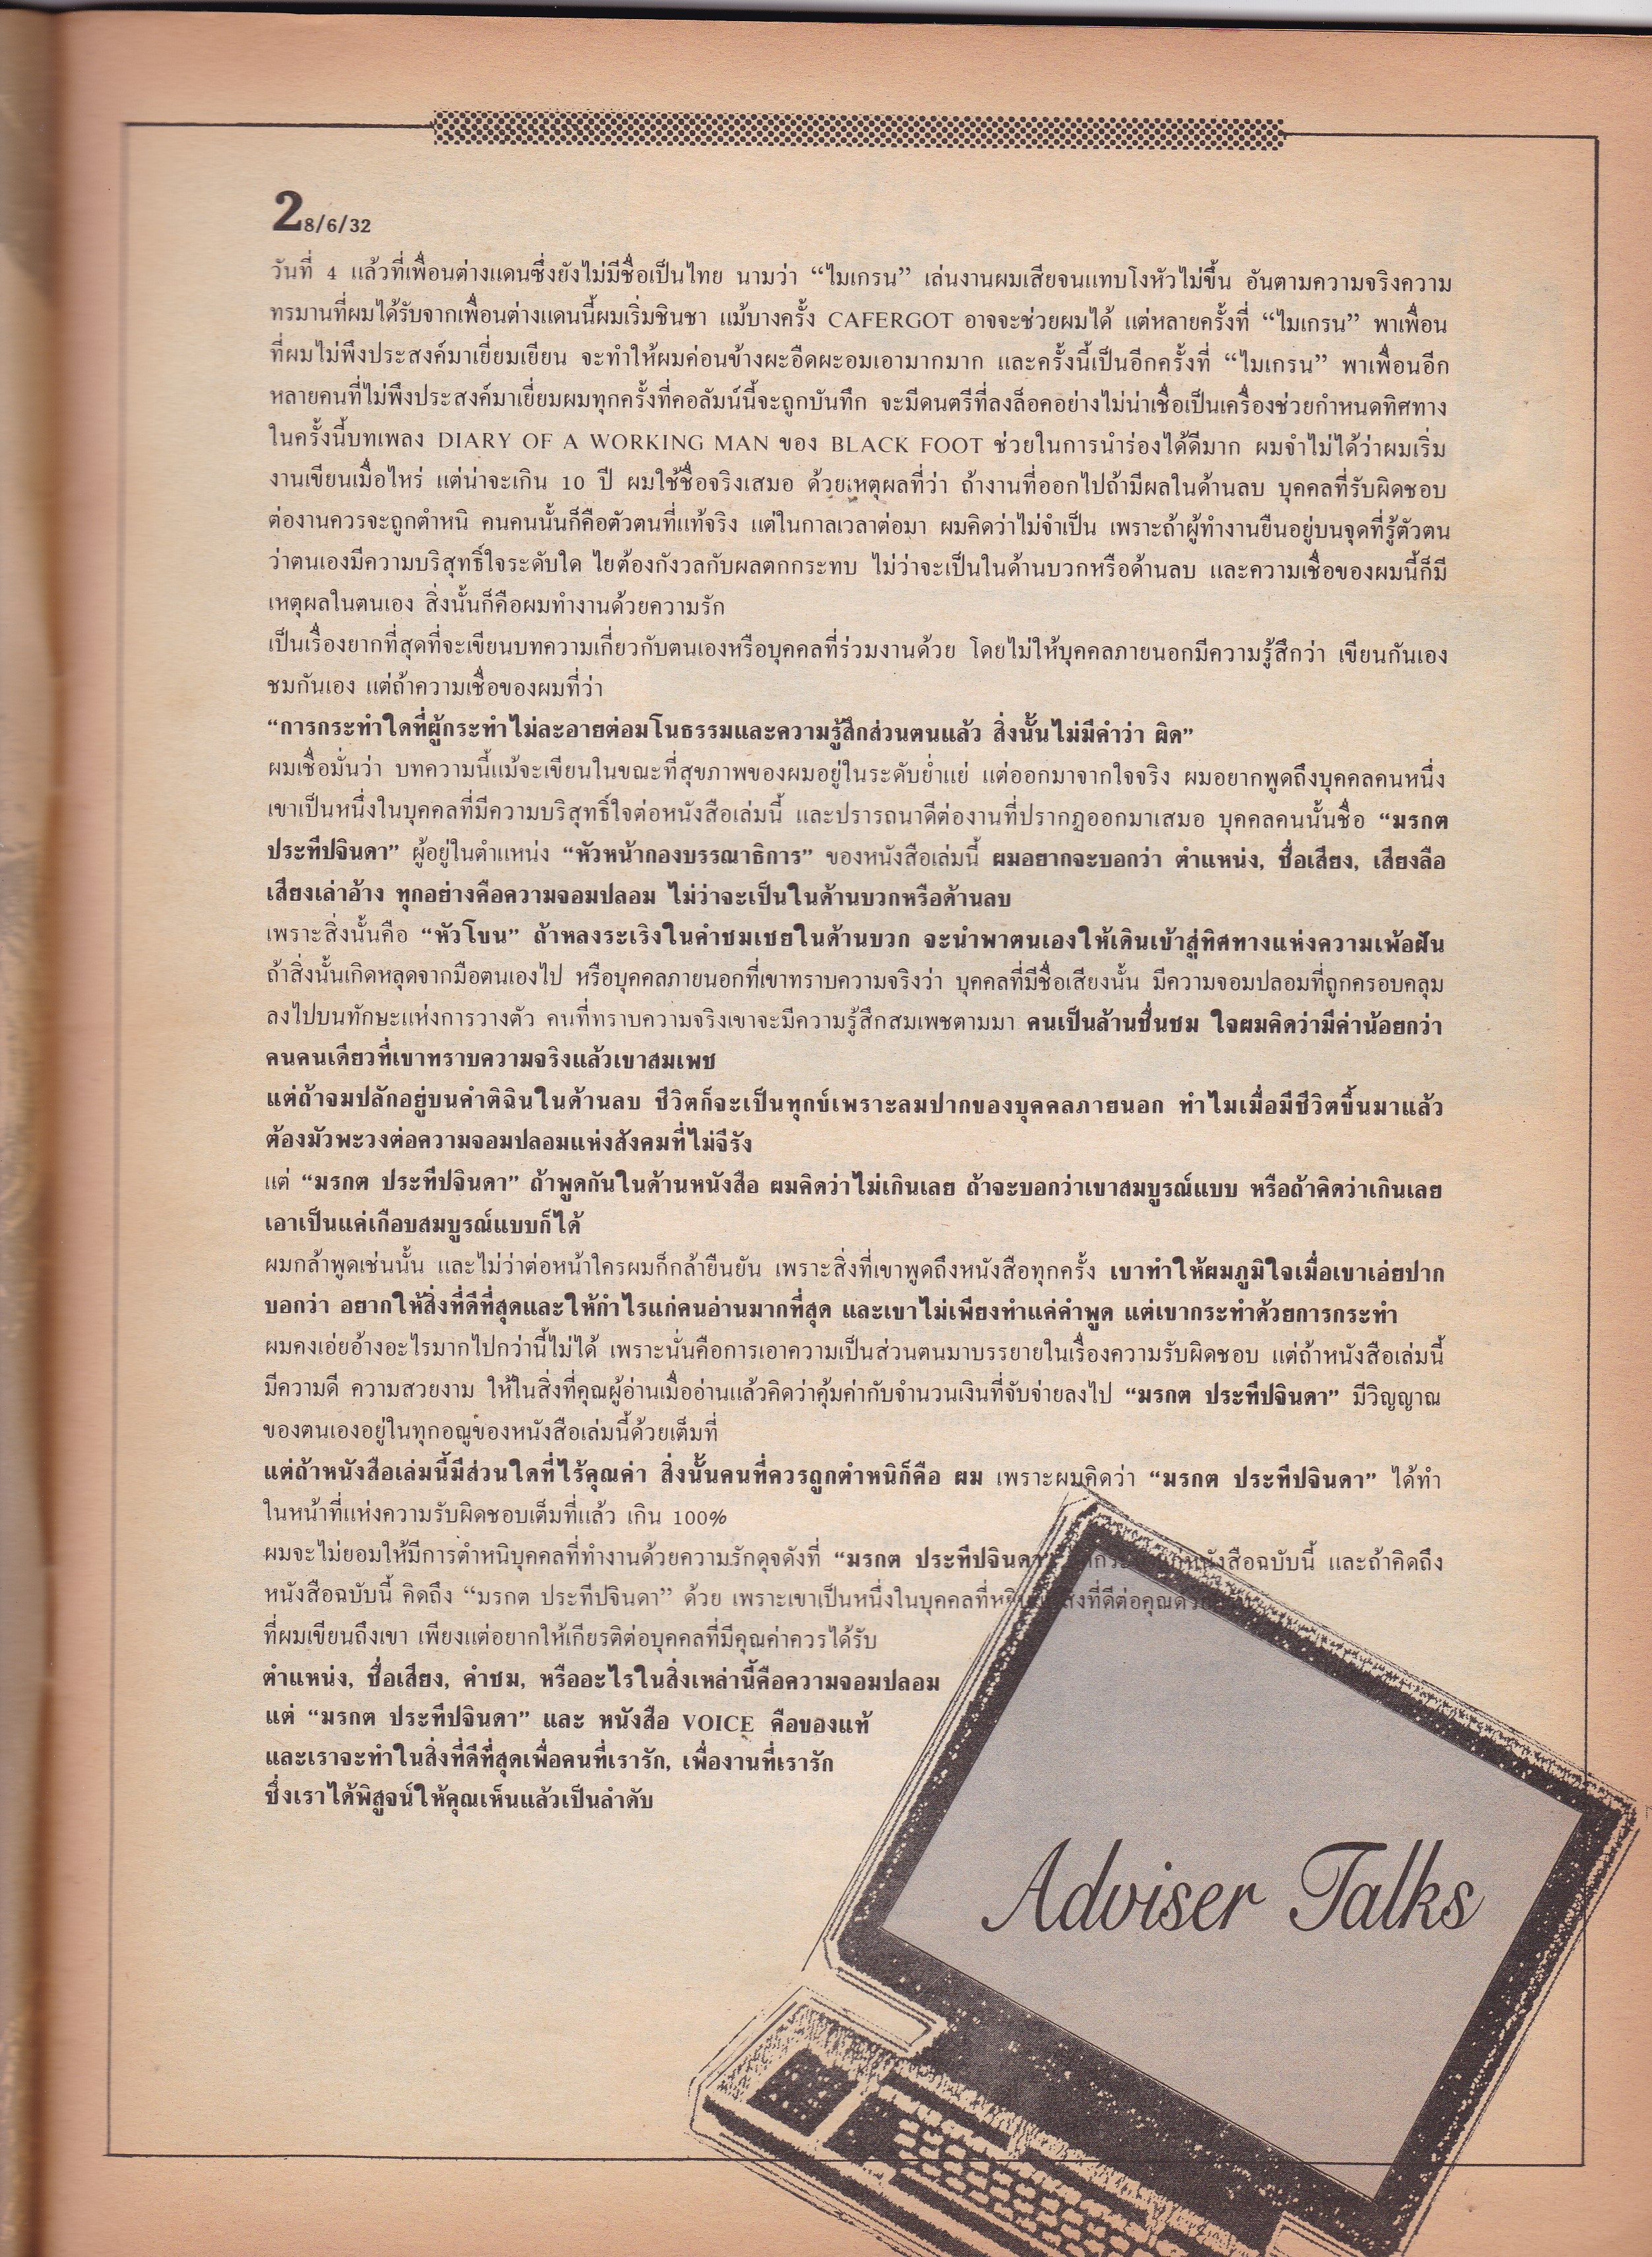 28/6/32
วันที่ 4 แล้วที่เพื่อนต่างแดนซึ่งยังไม่มีชื่อเป็นไทย นามว่า “ไมเกรน” เล่นงานผมเสียจนแทบโงหัวไม่ขึ้น อันตามความจริงความ
ทรมานที่ผมได้รับจากเพื่อนต่างแดนนี้ผมเริ่มชินชา แม้บางครั้ง CAFERGOT อาจจะช่วยผมได้ แต่หลายครั้งที่ “ไมเกรน” พาเพื่อน
ที่ผมไม่พึงประสงค์มาเยี่ยมเยียน จะทำให้ผมค่อนข้างผะอืดผะอมเอามากมาก และครั้งนี้เป็นอีกครั้งที่ “ไมเกรน” พาเพื่อนอีก
หลายคนที่ไม่พึงประสงค์มาเยี่ยมผมทุกครั้งที่คอลัมน์นี้จะถูกบันทึก จะมีดนตรีที่ลงล็อคอย่างไม่น่าเชื่อเป็นเครื่องช่วยกำหนดทิศทาง
ในครั้งนี้บทเพลง DIARY OF A WORKING MAN ของ BLACK FOOT ช่วยในการนำร่องได้ดีมาก ผมจำไม่ได้ว่าผมเริ่ม
งานเขียนเมื่อไหร่ แต่น่าจะเกิน 10 ปี ผมใช้ชื่อจริงเสมอ ด้วยเหตุผลที่ว่า ถ้างานที่ออกไปถ้ามีผลในด้านลบ บุคคลที่รับผิดชอบ
ต่องานควรจะถูกตำหนิ คนคนนั้นก็คือตัวตนที่แท้จริง แต่ในกาลเวลาต่อมา ผมคิดว่าไม่จำเป็น เพราะถ้าผู้ทำงานยืนอยู่บนจุดที่รู้ตัวตน
ว่าตนเองมีความบริสุทธิ์ใจระดับใด ไยต้องกังวลกับผลตกกระทบ ไม่ว่าจะเป็นในด้านบวกหรือด้านลบ และความเชื่อของผมนี้ก็มี
เหตุผลในตนเอง สิ่งนั้นก็คือผมทำงานด้วยความรัก
เป็นเรื่องยากที่สุดที่จะเขียนบทความเกี่ยวกับตนเองหรือบุคคลที่ร่วมงานด้วย โดยไม่ให้บุคคลภายนอกมีความรู้สึกว่า เขียนกันเอง
ชมกันเอง แต่ถ้าความเชื่อของผมที่ว่า
“การกระทำใดที่ผู้กระทำไม่ละอายต่อมโนธรรมและความรู้สึกส่วนตนแล้ว สิ่งนั้นไม่มีคำว่า ผิด”
ผมเชื่อมั่นว่า บทความนี้แม้จะเขียนในขณะที่สุขภาพของผมอยู่ในระดับย่ำแย่ แต่ออกมาจากใจจริง ผมอยากพูดถึงบุคคลคนหนึ่ง
เขาเป็นหนึ่งในบุคคลที่มีความบริสุทธิ์ใจต่อหนังสือเล่มนี้ และปรารถนาดีต่องานที่ปรากฏออกมาเสมอ บุคคลคนนั้นชื่อ “มรกต
ประทีปจินดา” ผู้อยู่ในตำแหน่ง “หัวหน้ากองบรรณาธิการ” ของหนังสือเล่มนี้ ผมอยากจะบอกว่า ตำแหน่ง, ชื่อเสียง, เสียงลือ
เสียงเล่าอ้าง ทุกอย่างคือความจอมปลอม ไม่ว่าจะเป็นในด้านบวกหรือด้านลบ
เพราะสิ่งนั้นคือ “หัวโขน” ถ้าหลงระเริงในคำชมเชยในด้านบวก จะนำพาตนเองให้เดินเข้าสู่ทิศทางแห่งความเพ้อฝัน
ถ้าสิ่งนั้นเกิดหลุดจากมือตนเองไป หรือบุคคลภายนอกที่เขาทราบความจริงว่า บุคคลที่มีชื่อเสียงนั้น มีความจอมปลอมที่ถูกครอบคลุม
ลงไปบนทักษะแห่งการวางตัว คนที่ทราบความจริงเขาจะมีความรู้สึกสมเพชตามมา คนเป็นล้านชื่นชม ใจผมคิดว่ามีค่าน้อยกว่า
คนคนเดียวที่เขาทราบความจริงแล้วเขาสมเพช
แต่ถ้าจมปลักอยู่บนคำติฉินในด้านลบ ชีวิตก็จะเป็นทุกข์เพราะลมปากของบุคคลภายนอก ทำไมเมื่อมีชีวิตขึ้นมาแล้ว
ต้องมัวพะวงต่อความจอมปลอมแห่งสังคมที่ไม่จีรัง
แต่ “มรกต ประทีปจินดา” ถ้าพูดกันในด้านหนังสือ ผมคิดว่าไม่เกินเลย ถ้าจะบอกว่าเขาสมบูรณ์แบบ หรือถ้าคิดว่าเกินเลย
เอาเป็นแค่เกือบสมบูรณ์แบบก็ได้
ผมกล้าพูดเช่นนั้น และไม่ว่าต่อหน้าใครผมก็กล้ายืนยัน เพราะสิ่งที่เขาพูดถึงหนังสือทุกครั้ง เขาทำให้ผมภูมิใจเมื่อเขาเอ่ยปาก
บอกว่า อยากให้สิ่งที่ดีที่สุดและให้กำไรแก่คนอ่านมากที่สุด และเขาไม่เพียงทำแค่คำพูด แต่เขากระทำด้วยการกระทำ
ผมคงเอ่ยอ้างอะไรมากไปกว่านี้ไม่ได้ เพราะนั่นคือการเอาความเป็นส่วนตนมาบรรยายในเรื่องความรับผิดชอบ แต่ถ้าหนังสือเล่มนี้
มีความดี ความสวยงาม ให้ในสิ่งที่คุณผู้อ่านเมื่ออ่านแล้วคิดว่าคุ้มค่ากับจำนวนเงินที่จับจ่ายลงไป “มรกต ประทีปจินดา” มีวิญญาณ
ของตนเองอยู่ในทุกอณูของหนังสือเล่มนี้ด้วยเต็มที่
แต่ถ้าหนังสือเล่มนี้มีส่วนใดที่ไร้คุณค่า สิ่งนั้นคนที่ควรถูกตำหนิก็คือ ผม เพราะผมคิดว่า “มรกต ประทีปจินดา” ได้ทำ
ในหน้าที่แห่งความรับผิดชอบเต็มที่แล้ว เกิน 100%
ผมจะไม่ยอมให้มีการตำหนิบุคคลที่ทำงานด้วยความรักดุจดังที่ “มรกต ประทีปจินดา” หนังสือฉบับนี้ และถ้าคิดถึง
หนังสือฉบับนี้ คิดถึง “มรกต ประทีปจินดา” ด้วย เพราะเขาเป็นหนึ่งในบุคคลที่ สิ่งที่ดีต่อคุณ
ที่ผมเขียนถึงเขา เพียงแต่อยากให้เกียรติต่อบุคคลที่มีคุณค่าควรได้รับ
ตำแหน่ง, ชื่อเสียง, คำชม, หรืออะไรในสิ่งเหล่านี้คือความจอมปลอม
แต่ “มรกต ประทีปจินดา” และ หนังสือ VOICE คือของแท้
และเราจะทำในสิ่งที่ดีที่สุดเพื่อคนที่เรารัก, เพื่องานที่เรารัก
ซึ่งเราได้พิสูจน์ให้คุณเห็นแล้วเป็นลำดับ
Adviser Talks